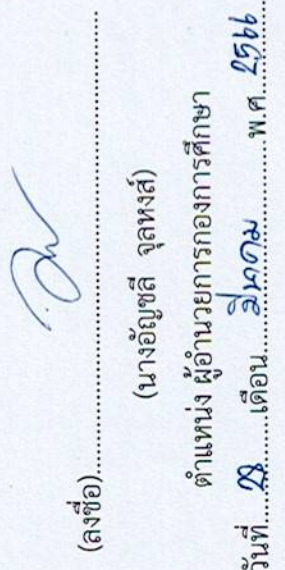 (ลงชื่อ)....................................................
(นางอัญชลี จุลหงส์)
ตำแหน่ง ผู้อำนวยการกองการศึกษา
วันที่....28......เดือน....มีนาคม........พ.ศ. 2566